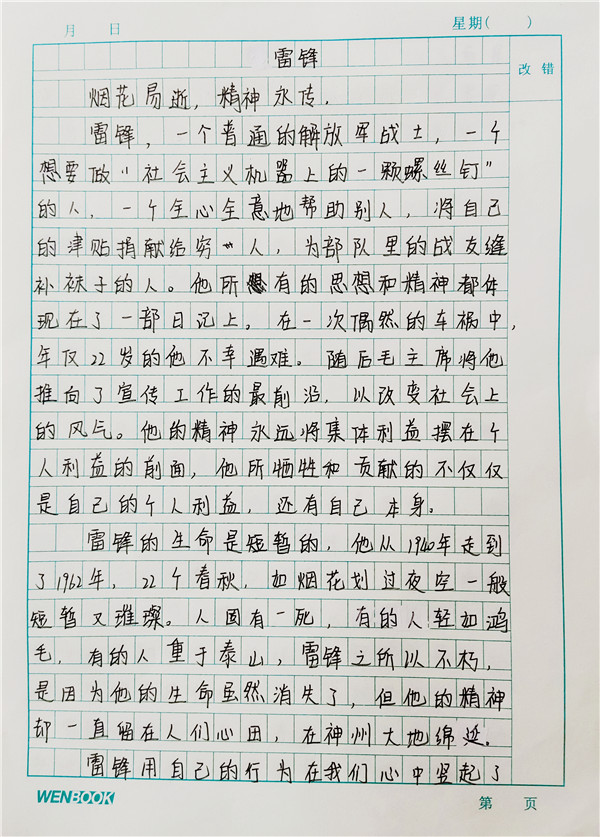 月 日 星期( )
雷锋
改错
烟花易逝，精神永传.
雷锋，一个普通的解放军战士，一个
想要做“社会主义机器上的一颗螺丝钉”
的人，一个全心全意地帮助别人，将自己
的津贴捐献给穷人，为部队里的战友缝
补袜子的人。他所有的思想和精神都体
现在了一部日记上。在一次偶然的车祸中，
年仅22岁的他不幸遇难。随后毛主席将他
推向了宣传工作的最前沿，以改变社会上
的风气。他的精神永远将集体利益摆在个
人利益的前面，他所牺牲和贡献的不仅仅
是自己的个人利益，还有自己本身。
雷锋的生命是短暂的，他从1940年走到
了1962年，22个春秋，如烟花划过夜空一般
短暂又璀璨。人固有一死，有的人轻如鸿
毛，有的人重于泰山，雷锋之所以不朽，
是因为他的生命虽然消失了，但他的精神
却一直留在人们心田，在神州大地绵延。
雷锋用自己的行为在我们心中竖起了
WENBOOK 第 页